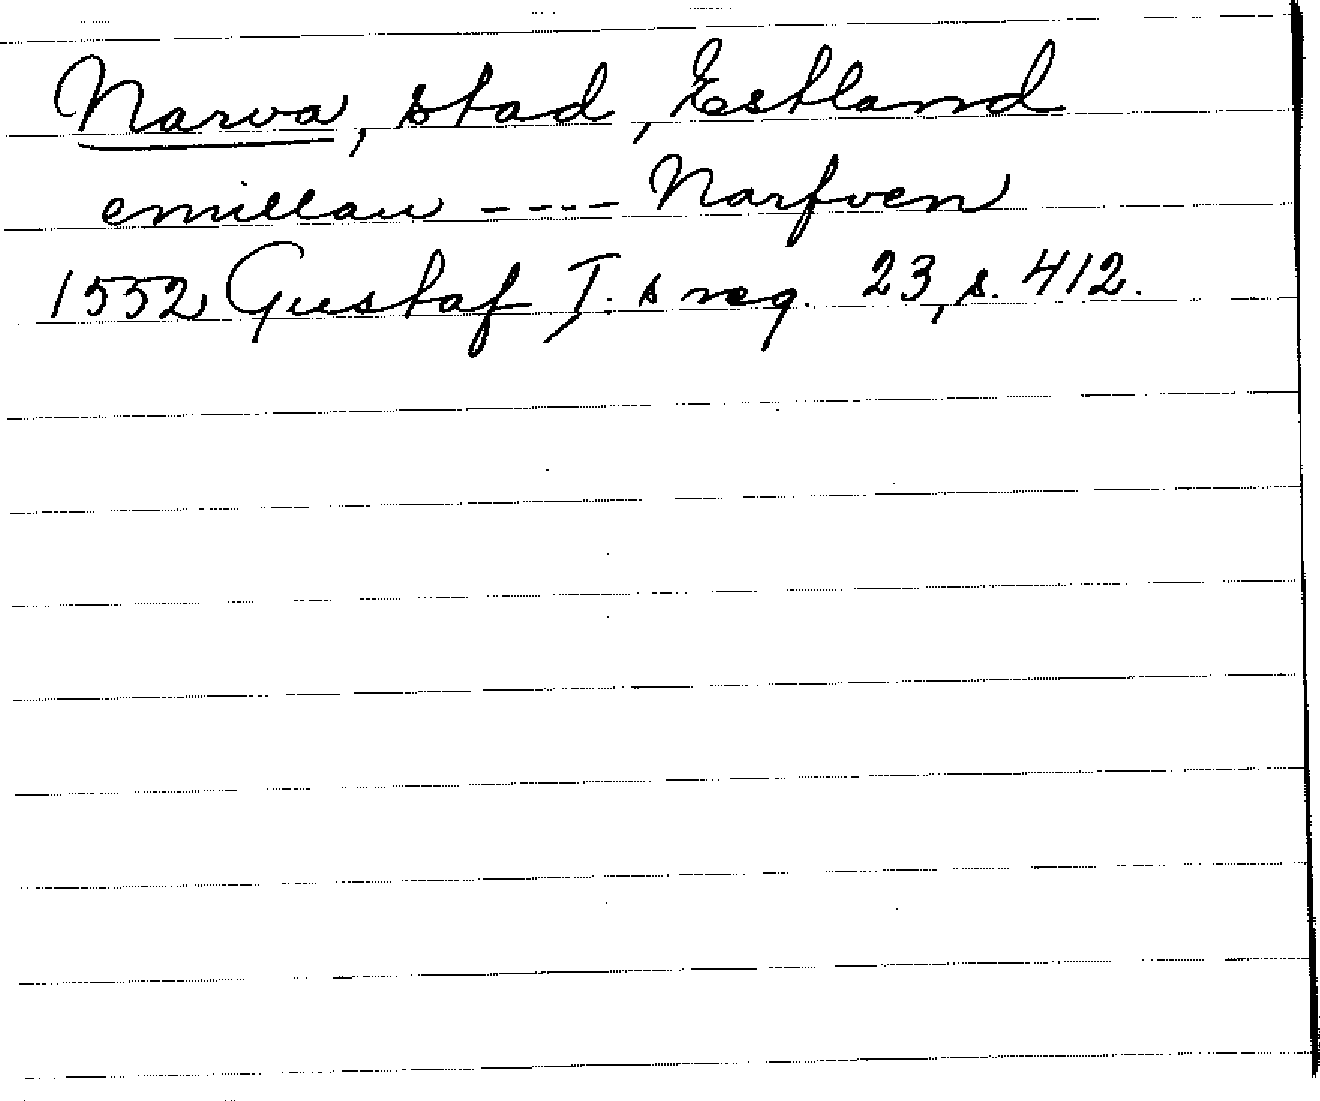 Narva, stad, Estland
emillan ---- Narfven
1552 Gustaf I:s reg. 23, s. 412.